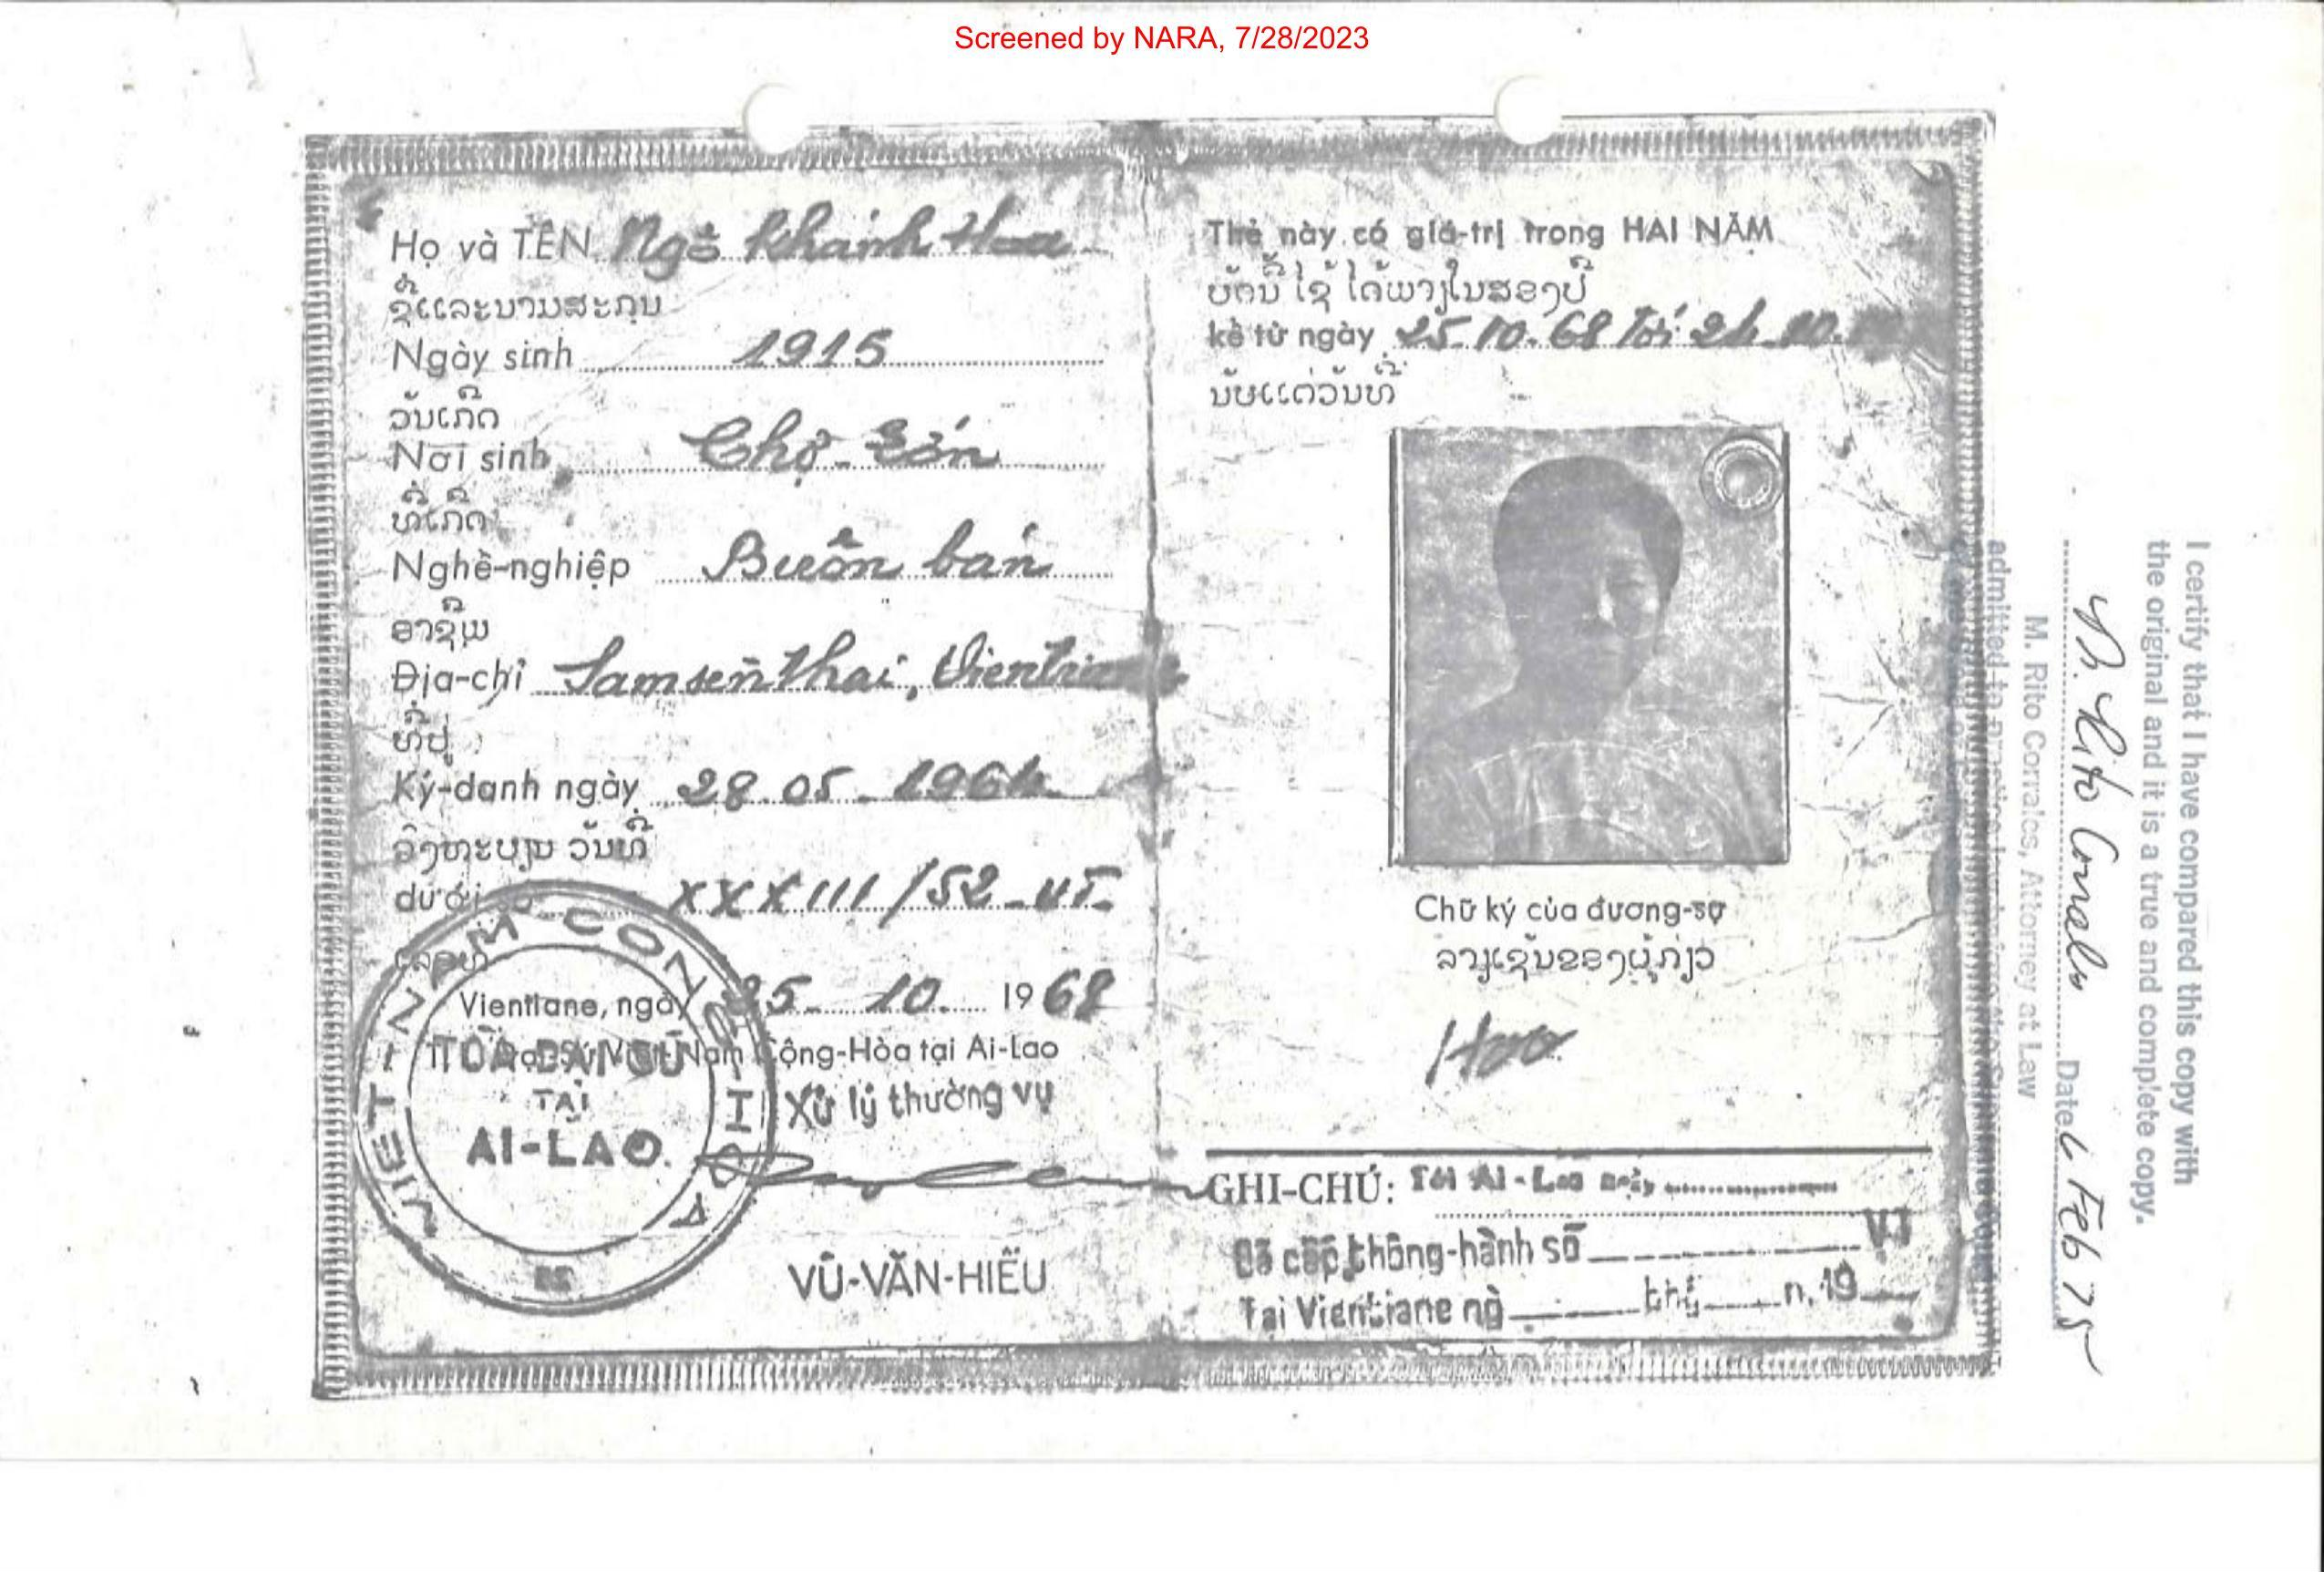 Screened by NARA, 7/28/2023
Họ và TÊN Ngô Khánh Hoa
ຊື່ແລະນາມສະກຸນ
Ngày sinh 1915
ວັນເກີດ
Nơi sinh Chợ-Lớn
ທີ່ເກີດ
Nghề-nghiệp Buôn bán
ອາຊີພ
Địa-chỉ Samsenthai, Vientiane
ທີ່ຢູ່
Ký-danh ngày 28.05.1964
ລົງທະບຽນ ວັນທີ່
dưới số XXXIII/52-VT.
ເລກທີ່
Vientiane, ngày 25 10 1968
Việt Nam Cộng-Hòa tại Ai-Lao
Xử lý thường vụ
VŨ-VĂN-HIẾU
VIET-NAM CONG HOA
TÒA ĐẠI SỨ
TẠI
AI-LAO
Thẻ này có giá-trị trong HAI NĂM
ບັດນີ້ ໃຊ້ ໄດ້ພາຽໃນສອງປີ
kể từ ngày 25.10.68 tới 24.10.
ນັບແຕ່ວັນທີ່
Chữ ký của đương-sự
ລາຽເຊັນຂອງຜູ້ກ່ຽວ
Hoa
GHI-CHÚ: Tới Ai-Lao ngày
Đã cấp thông-hành số VT
Tại Vientiane ng th n. 19
I certify that I have compared this copy with
the original and it is a true and complete copy.
M. Rito Corrales Date 6 Feb 75
M. Rito Corrales, Attorney at Law
admitted to